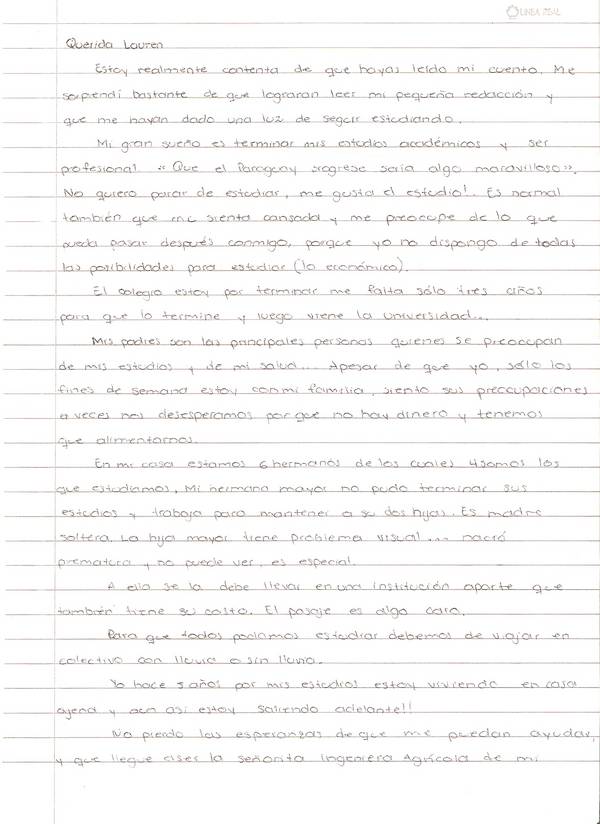 LINEA REAL
Querida Lauren
Estoy realmente contenta de que hayas leído mi cuento. Me
sorprendí bastante de que lograran leer mi pequeña redacción y
que me hayan dado una luz de seguir estudiando.
Mi gran sueño es terminar mis estudios académicos y ser
profesional "Que el Paraguay progrese sería algo maravilloso".
No quiero parar de estudiar, me gusta el estudio!. Es normal
también que me sienta cansada y me preocupe de lo que
pueda pasar después conmigo, porque yo no dispongo de todas
las posibilidades para estudiar (lo económico).
El colegio estoy por terminar me falta sólo tres años
para que lo termine y luego viene la universidad...
Mis padres son las principales personas quienes se preocupan
de mis estudios y de mi salud... Apesar de que yo, sólo los
fines de semana estoy con mi familia, siento sus preocupaciones
a veces nos desesperamos porque no hay dinero y tenemos
que alimentarnos.
En mi casa estamos 6 hermanos de los cuales 4 somos los
que estudiamos, Mi hermana mayor no pudo terminar sus
estudios y trabaja para mantener a su dos hijas. Es madre
soltera. La hija mayor tiene problema visual... nació
prematura y no puede ver, es especial.
A ella se la debe llevar en una institución aparte que
también tiene su costo. El pasaje es algo caro.
Para que todos podamos estudiar debemos de viajar en
colectivo con lluvia o sin lluvia.
Yo hace 5 años por mis estudios estoy viviendo en casa
ajena y aun así estoy saliendo adelante!!
No pierdo las esperanzas de que me puedan ayudar,
y que llegue a ser la señorita Ingeniera Agrícola de mi